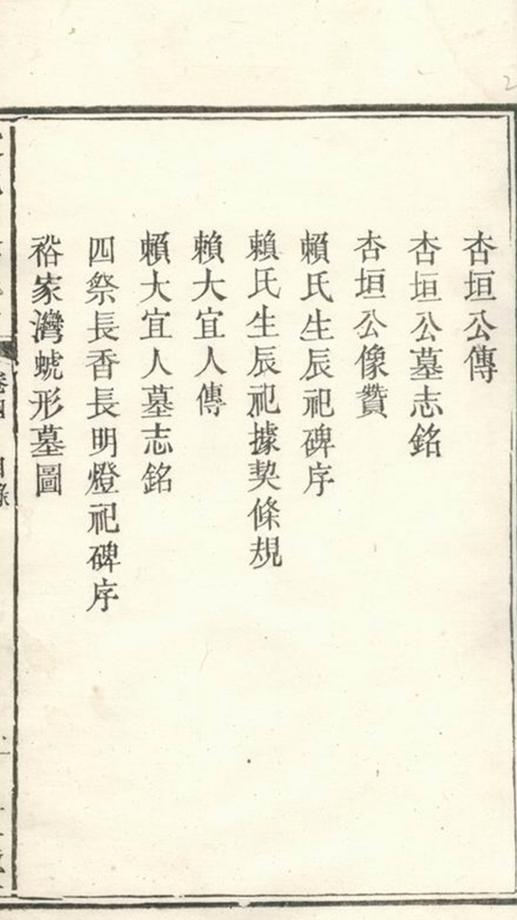 杏垣公傳
杏垣公墓志銘
杏垣公像贊
賴氏生辰祀碑序
賴氏生辰祀據契條規
賴大宜人傳
賴大宜人墓志銘
四祭長香長明燈祀碑序
裕家灣虓形墓圖
卷四 目錄